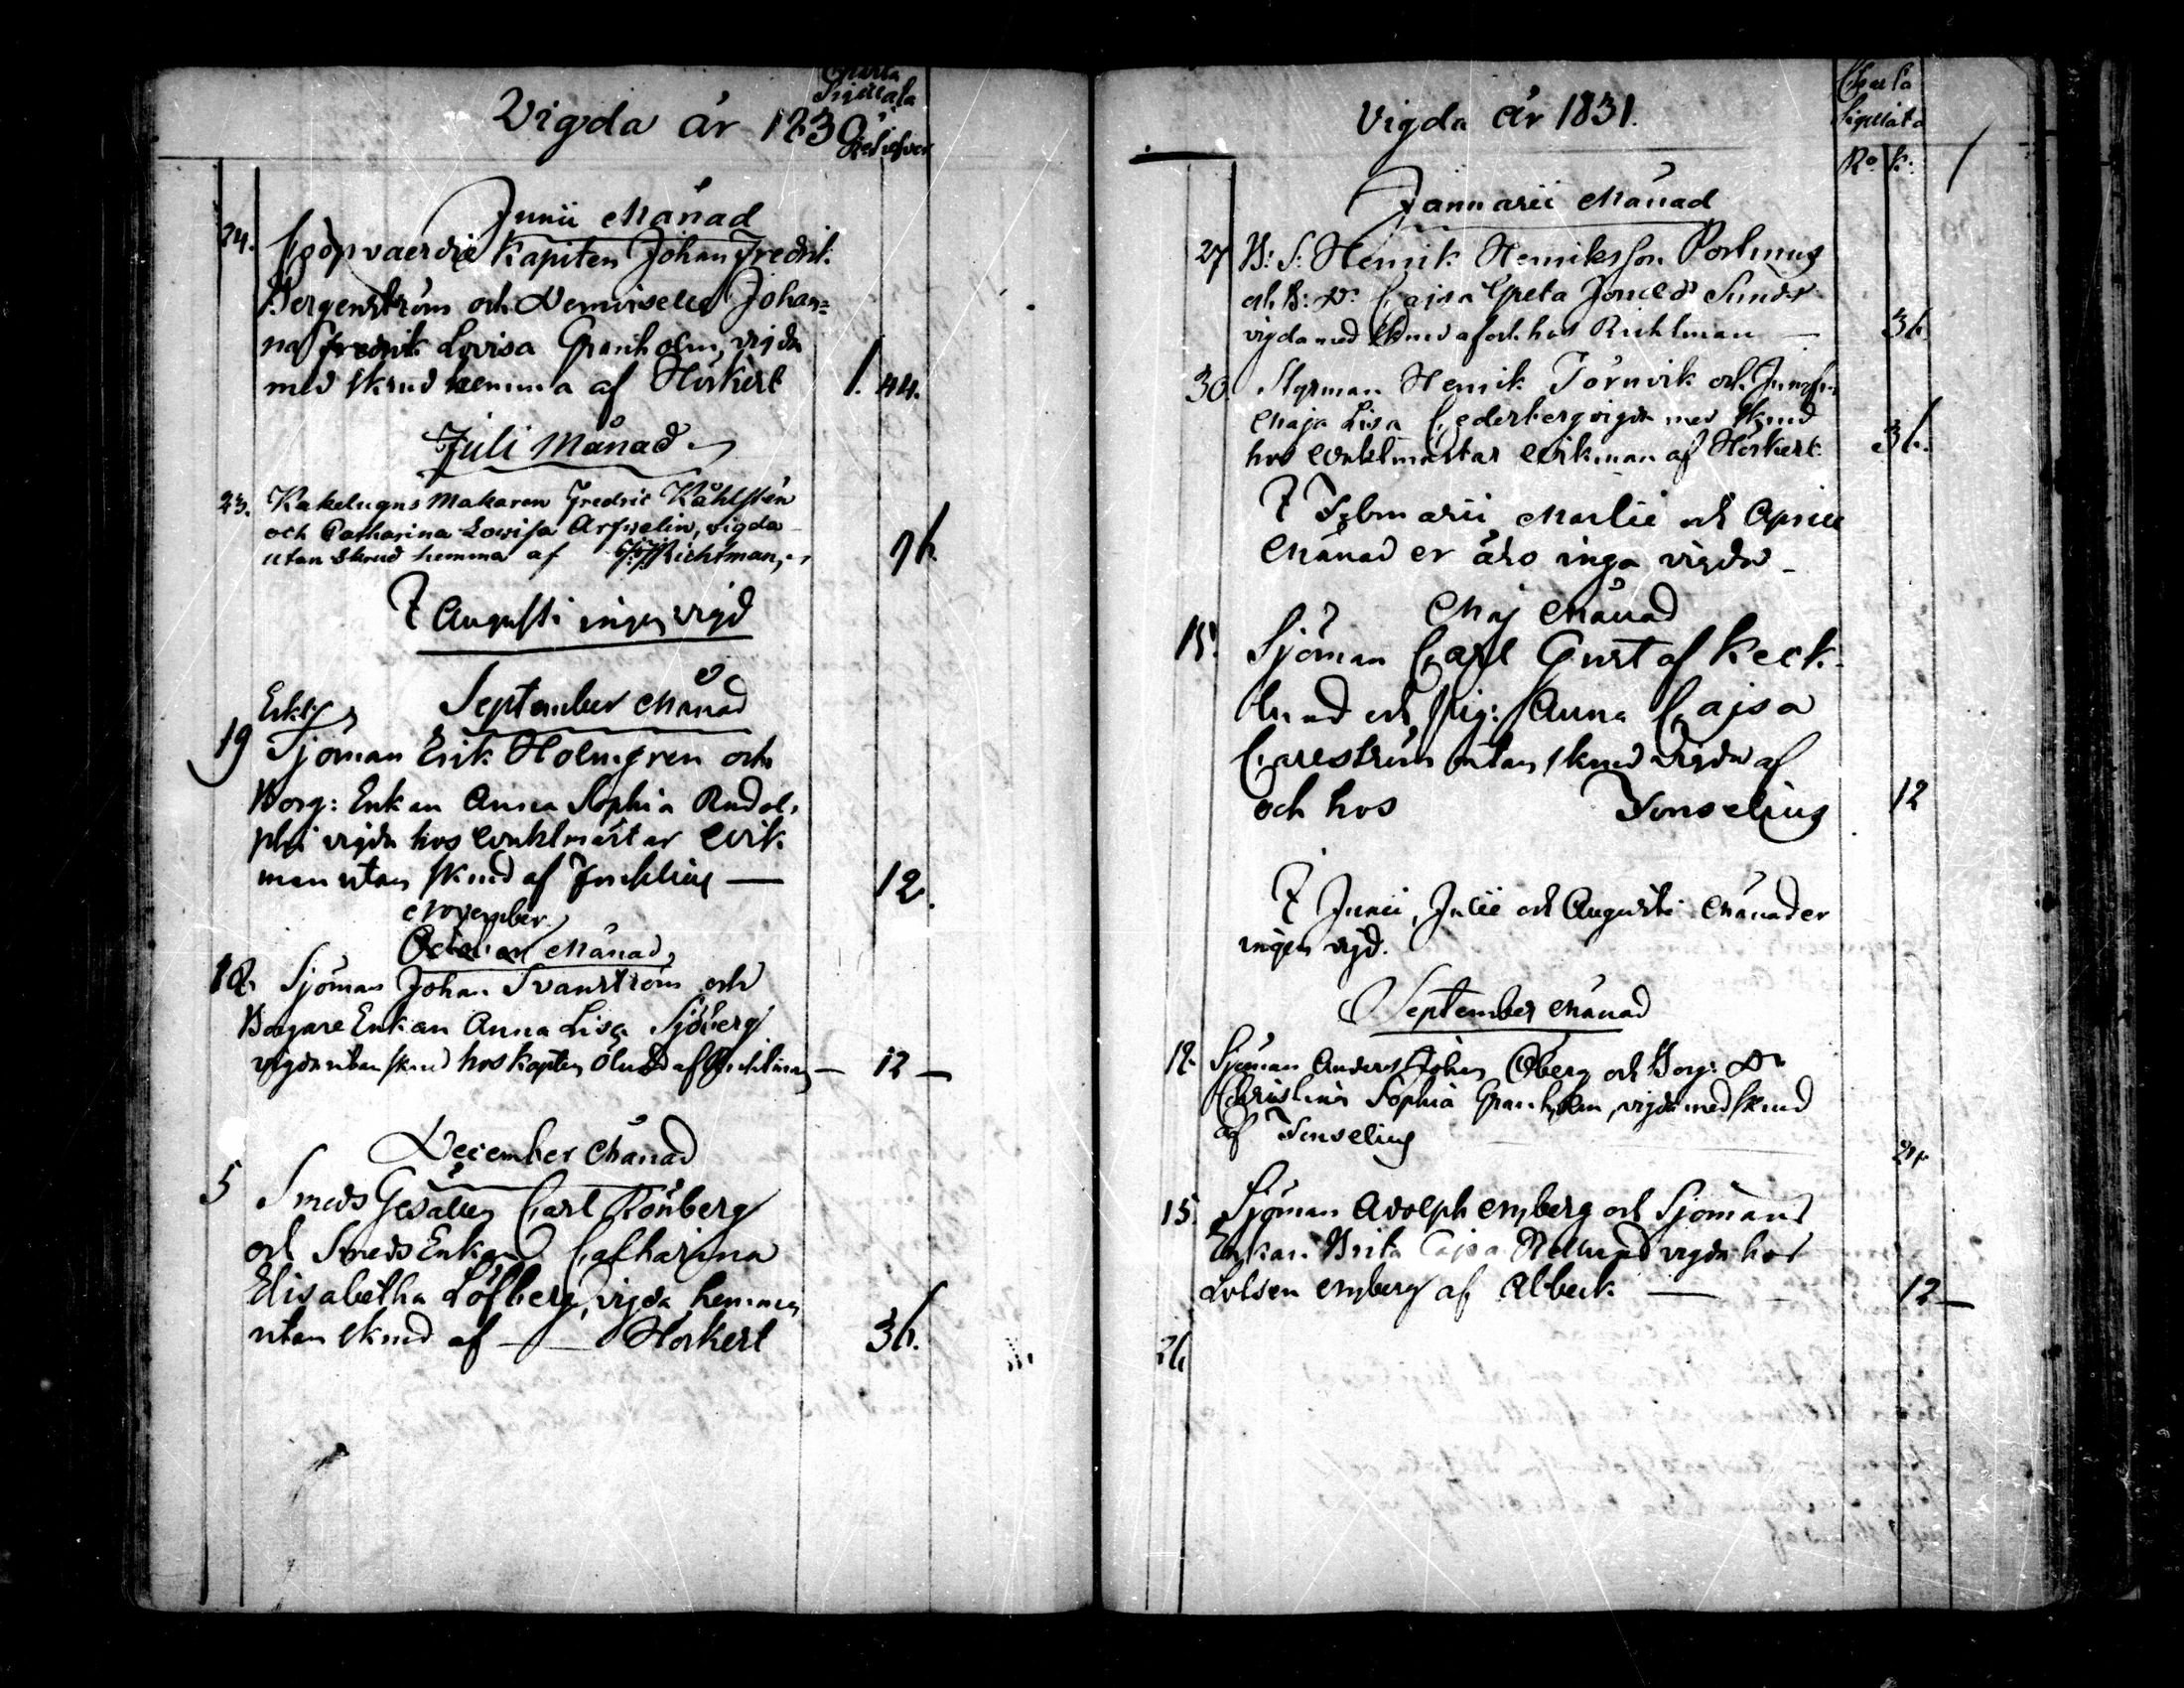 Vigda år 1830
Charta
Sigillata
Junii Månad
24. Coopvaerdie Kapiten Johan Fredrik
Bergenström och Demoiselle Johan=
na Fredrik Lovisa Granholm, vigda
med skrud hemma af Horkert 1. 44.
Juli Månad
23. Kakelugns Makaren Fredric Kåhlstén
och Catharina Lovisa Arfvelin, vigda
utan skrud hemma af Richtman,
I Augusti ingen vigd
September Månad
19 Sjöman Erik Holmgren och
Borg: Enkan Anna Sophia Rudol,
phi vigda hos Wik
man utan skrud af 12.
November
October Månad
18. Sjöman Johan Svanström och
Borgare Enkan Anna Lisa Sjöberg
vigda utan skrud hos Kapten Ölund af 12
December Månad
5 Smeds Gesällen Carl Rönberg
och Smeds Enkan Catharina
Elisabetha Löfberg, vigda hemma
utan skrud af Horkert 36.
Vigda År 1831.
Charta
Sigillata
Ro. k.
Januarii Månad
27 B: S: Henrik Henriksson Portinus
och B: Dr Cajsa Greta Sund
vigda med skrud af och hos Richtman 36
30. Styrman Henrik Törnvik och Jungfru
Maja Lisa Cederberg vigda med skrud
hos Wikman af Horkert. 36.
I Februarii, Martii och April
Månader äro inga vigda
Maj Månad
15. Sjöman Carl Gustaf Keck-
lund och Pig: Anna Cajsa
Carlström utan skrud vigda af
och hos Fonselius 12
I Junii, Julii och Augusti Månader
ingen vigd.
September Månad
12. Sjöman Anders Johan Öberg och Borg: Dr
Christina Sophia Granholm, vigda med skrud
af Fonselius
15. Sjöman Adolph Nyberg och Sjömans
Enkan Brita Cajsa vigda hos
Lotsen Nyberg af Ahlbeck 12
26